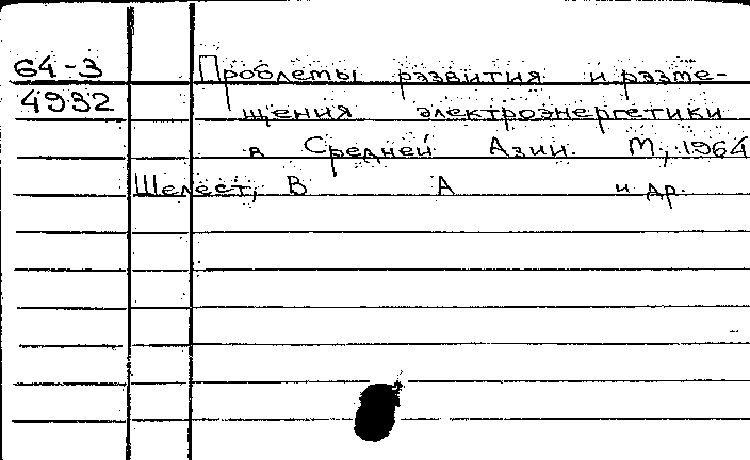 64-3 Проблемы развития и разме-
4932 щения электроэнергетики
в Средней Азии. М., 1964
Шелест, В А и др.